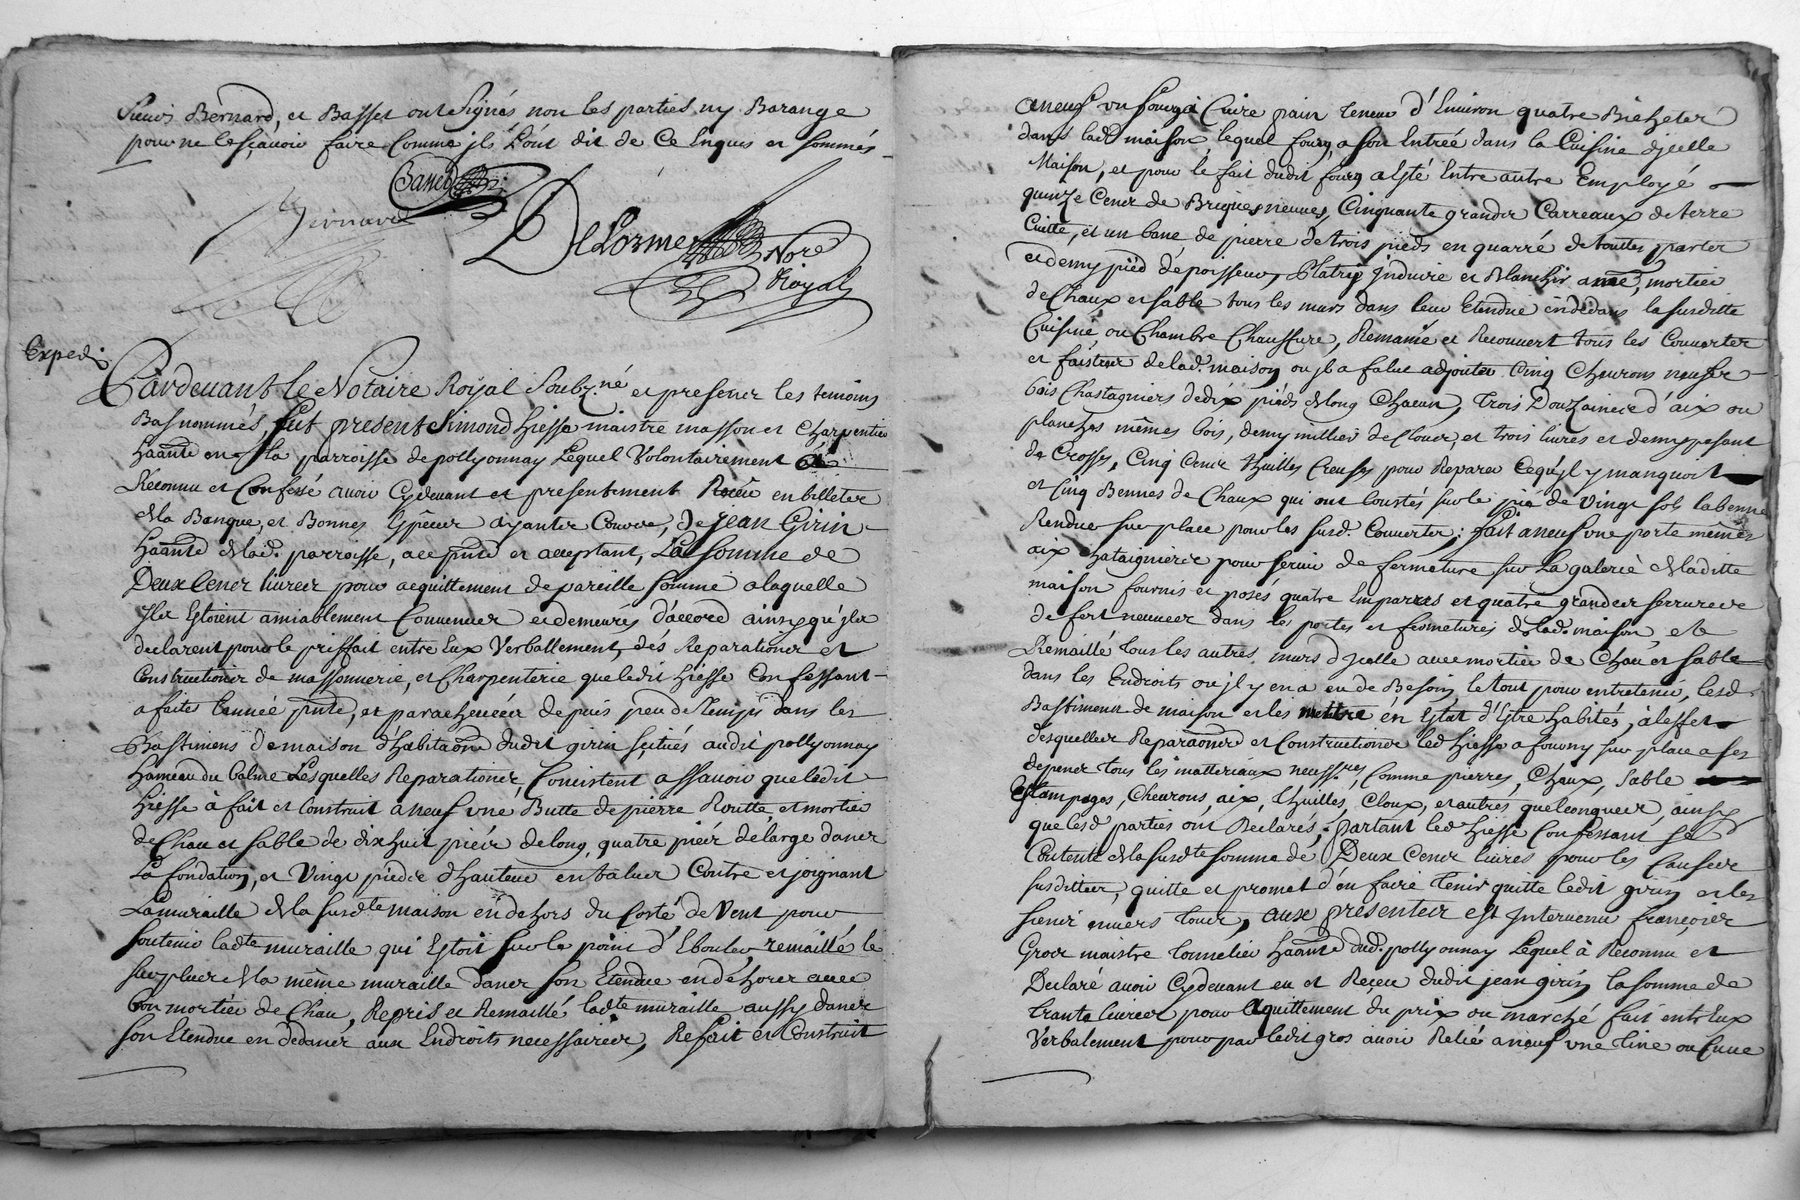 Sieurs Bernard, et Basset ont signés non les parties ny Barange
pour ne le sçavoir faire comme ils l'ont dit de ce enquis et sommés
Basset
Bernard
Delorme
Nore
Royal
Expedié
Pardevant le Notaire Royal soubz.né et presence les temoins
Bas nommés, fut present Simond hiesse maistre masson et charpentier
haânt en la parroisse de pollyonnay lequel volontairement a
Reconnu et confessé avoir cydevant et presentement Receu en billets
de la Banque, et Bonnes Espèces ayantes Couvre, de jean Girin
haânt de lad. parroisse, ace pnt et acceptant, La somme de
Deux Cent livres pour acquittement de pareille somme a laquelle
ils Estoient amiablement Convenus et demeurés d'accord ainsy qu'ils
declarent pour le prisfait entre Eux Verballement, dés Reparations et
Constructions de massonnerie, et Charpenterie que ledit hiesse Confessant
a faites l'année pnte, et parachevées depuis peu de Temps dans les
Bastimens de maison d'habitaôn dudit girin scitués audit pollyonnay
hameau du balme Lesquelles Reparations, Consistent assavoir que ledit
hiesse à fait et construit aneuf une Butte de pierre Routte, et mortier
de Chau et sable de dix huit pieds de long quatre pieds de large dans
La fondation, et Vingt pieds d'hauteur en talus Contre et joignant
La muraille de la susd.te maison en dehors du Costé de Vent pour
soutenir lad.te muraille qui Estoit sur le point d'Ebouler remaillé le
surplus de la même muraille dans son Etendue en dehors avec
bon mortier de Chau, Repris et Remaillé lad.te muraille aussy dans
son Etendue en dedans aux Endroits necessaires, Refait et Construit
aneuf un fourg à Cuire pain teneur d'Environ quatre Bichets
dans lad. maison lequel fourg a son Entrée dans la Cuisine d'jcelle
Maison, et pour le fait dudit fourg a Esté Entre autre Employé
quinze Cent de Briques neuves, Cinquante grands Carreaux de terre
Cuitte, et un banc de pierre de trois pieds en quarré de touttes parts
et demy pied d'epoisseur, Platrip Induire et Blanchir avec mortier
de Chaux et sable tous les murs dans leur Etendue en dedans la susditte
Cuisine ou Chambre Chaussure, Remanie et Recouvert tous les Couverts
et faisteur de lad. maison ou jl a falut adjouter Cinq Chevrons neufs
bois Chastagniers de dix pieds de long Chacun, Trois Douzaines d'aix ou
planches mêmes bois, demy millier de Cloux, et trois livres et demy pesant
de Crosses, Cinq Cent thuilles Creuses pour Reparer Ce qu'jl y manquoit
et Cinq Bennes de Chaux qui ont Coustés sur le pié de vingt sols la benne
Rendue sur place pour les susd. Couverts; fait aneuf une porte mêmes
aix chataigniers pour servir de fermeture sur La galerie de laditte
maison fournis et posés quatre Emparres et quatre grandes serrures
de fert neuves dans les portes et fermetures de lad. maison, et
Remaillé tous les autres murs d'jcelle avec mortier de Chau et sable
dans les Endroits ou jl y en a eu de Besoin, le tout pour entretenir, lesd.
Bastimens de maison et les mettre en Estat d'Estre habités, à l'effet
desquelles Reparaôns et Constructions led. hiesse a fourny sur place a ses
depens tous les matteriaux necess.res, Comme pierres, Chaux, sable
Estampages, Chevrons, aix, thuilles, Cloux, et autres quelconques, ainsy
que lesd. parties ont Declarés; Partant led. hiesse Confessant se
Contente de la susd.te somme de Deux Cent livres pour les Causes
susdittes, quitte et promet d'en faire Tenir quitte ledit girin et les
siens envers tous, aux presentes est Intervenu françois
Gros maistre tonnelier haânt dud. pollyonnay Lequel à Reconnu et
Declaré avoir Cydevant eu et Reçeu dudit jean girin la somme de
trante livres pour acquittement du prix ou marché fait entr'Eux
Verbalement pour par ledit gros avoir Relié aneuf une Tine ou Cuve